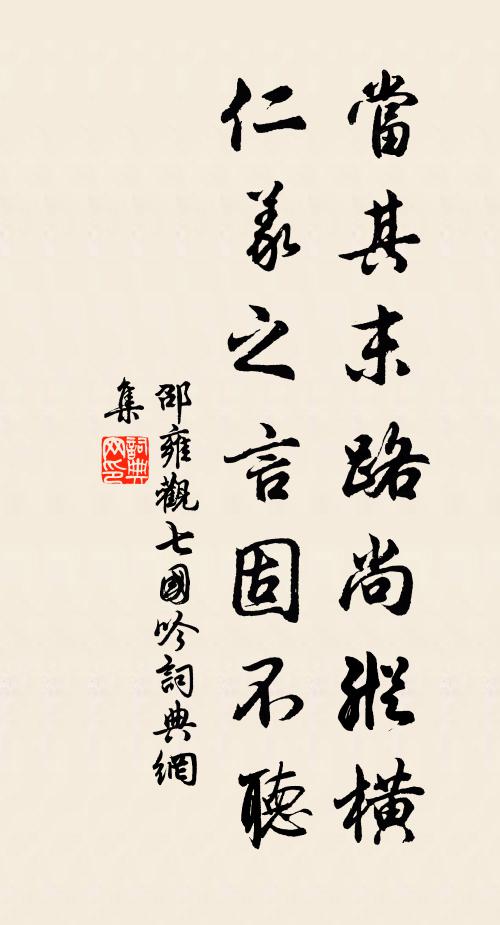 當其末路尚縱橫
仁義之言固不聽
邵雍觀七國吟詞典網
集
詞典網印